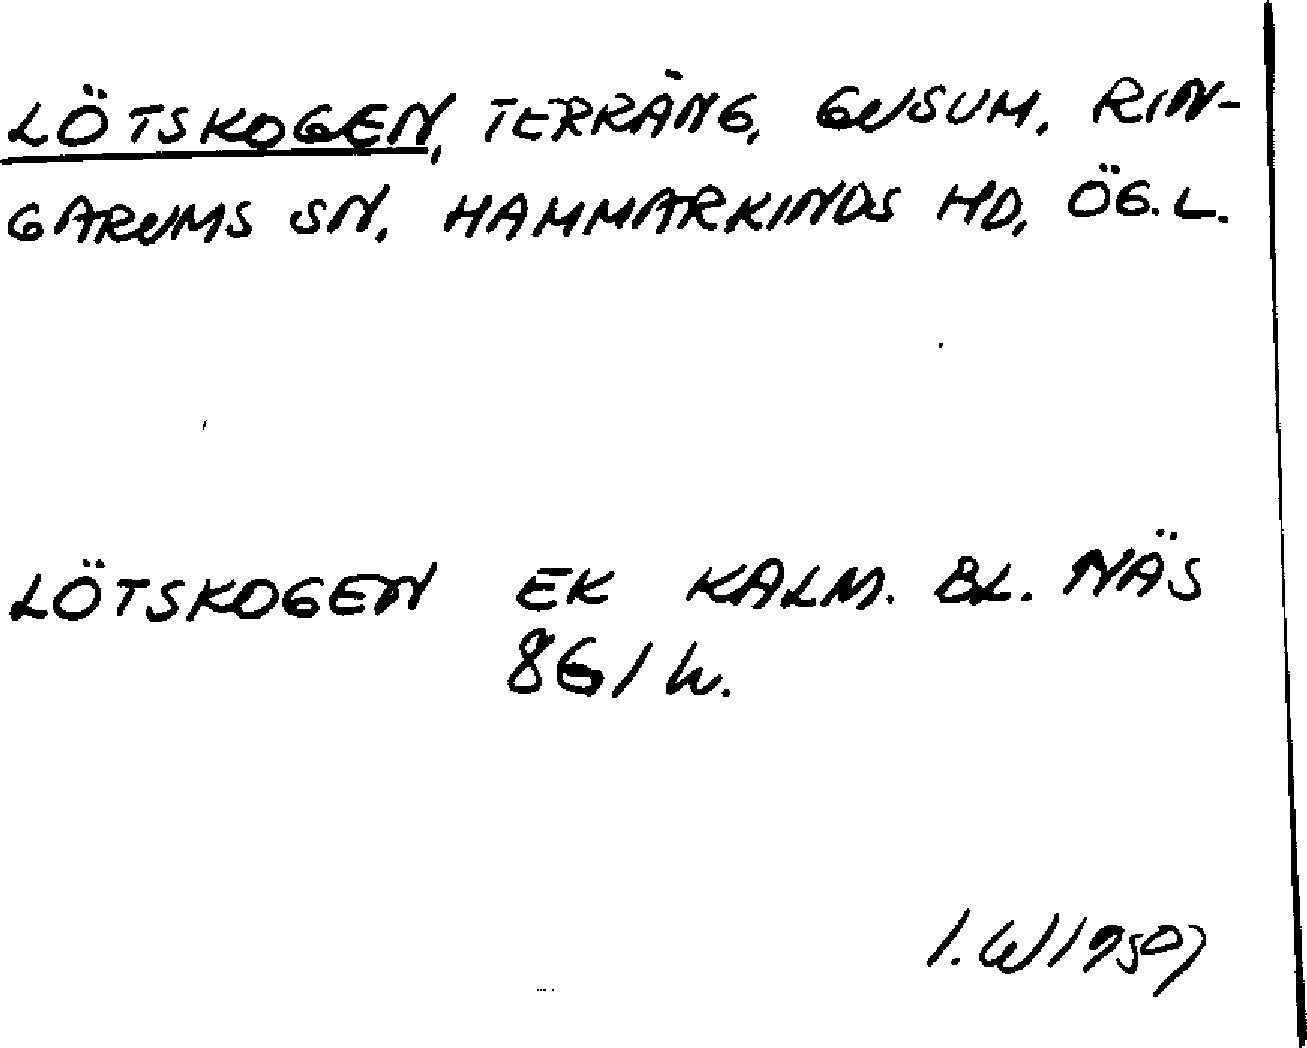 LÖTSKOGEN, TERRÄNG, GUSUM, RIN-
GARUMS SN, HAMMARKINDS HD, ÖG. L.
LÖTSKOGEN EK KALM. BL. NÄS
8G1h.
I. W